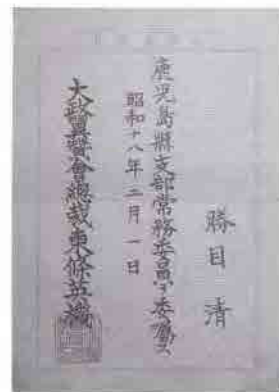 勝目清
鹿児島縣支部常務委員ヲ委嘱ス
昭和十八年二月一日
大政翼賛會總裁東條英機